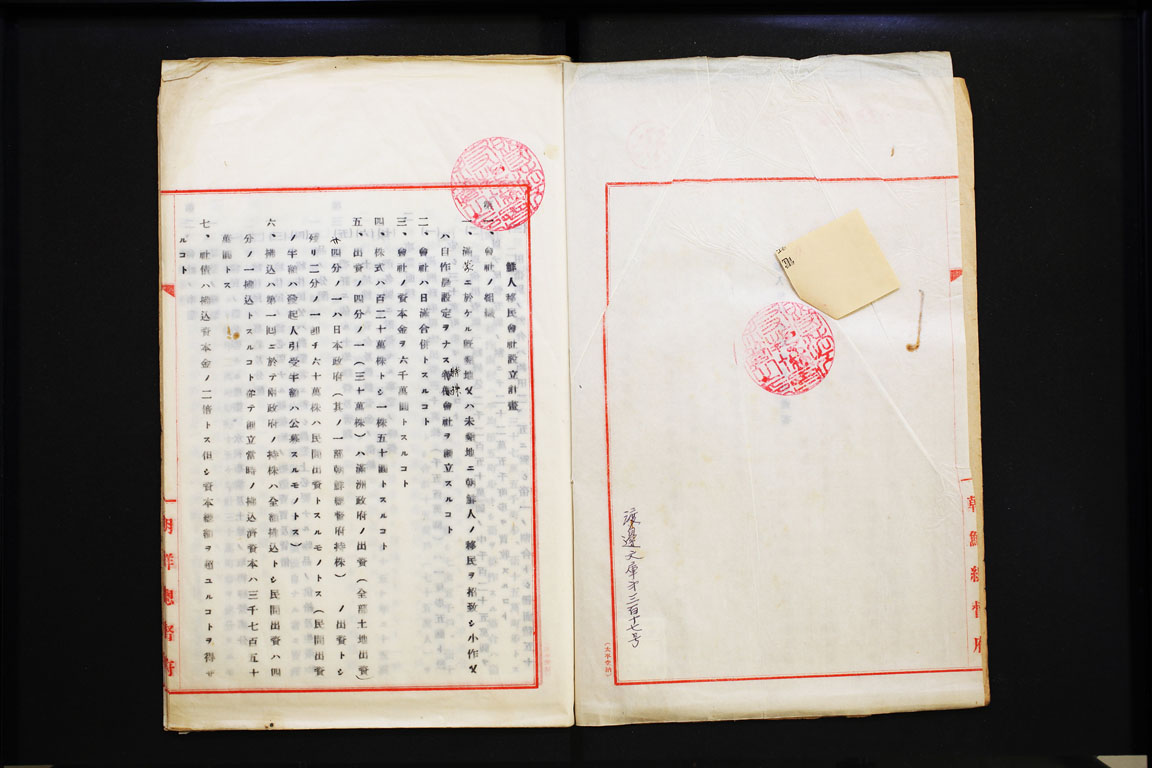 渡邊文庫第三百十七号
朝鮮總督府
鮮人移民會社設立計畫
一、會社ノ組織
一、滿洲ニ於ケル既墾地又ハ未墾地ニ朝鮮人ノ移民ヲ招致シ小作又
ハ自作農設定ヲナス 會社ヲ創立スルコト
二、會社ハ日滿合併トスルコト
三、會社ノ資本金ヲ六千萬圓トスルコト
四、株式ハ百二十萬株トシ一株五十圓トスルコト
五、出資ノ四分ノ一(三十萬株)ハ滿洲政府ノ出資(全部土地出資)
四分ノ一ハ日本政府(其ノ一部朝鮮總督府持株)ノ出資トシ
殘リ二分ノ一卽チ六十萬株ハ民間出資トスルモノトス(民間出資
ノ半額ハ發起人引受半額ハ公募スルモノトス)
六、拂込ハ第一回ニ於テ兩政府ノ持株ハ全額拂込トシ民間出資ハ四
分ノ一拂込トスルコト 創立當時ノ拂込濟資本ハ三千七百五十
萬圓トス
七、社債ハ拂込資本金ノ二倍トス但シ資本總額ヲ超ユルコトヲ得サ
ルコト
朝鮮總督府